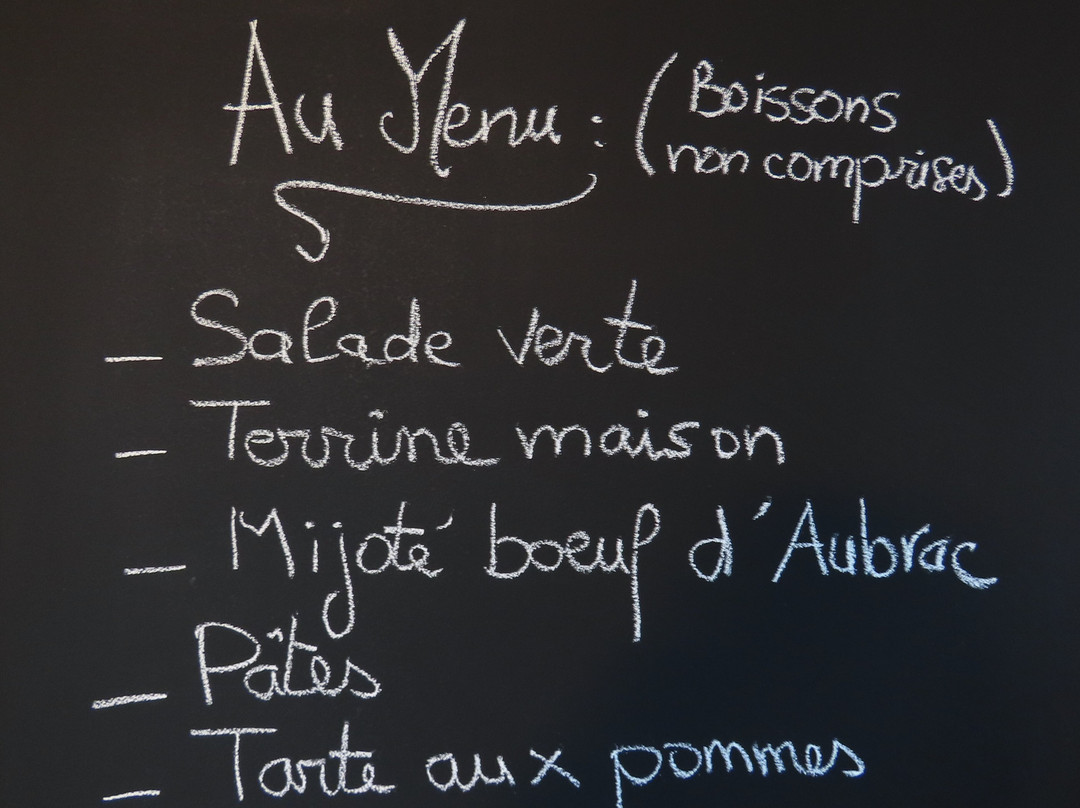 Au Menu : (Boissons
non comprises)
_ Salade verte
_ Terrine maison
_ Mijoté boeuf d'Aubrac
_ Pâtes
_ Tarte aux pommes